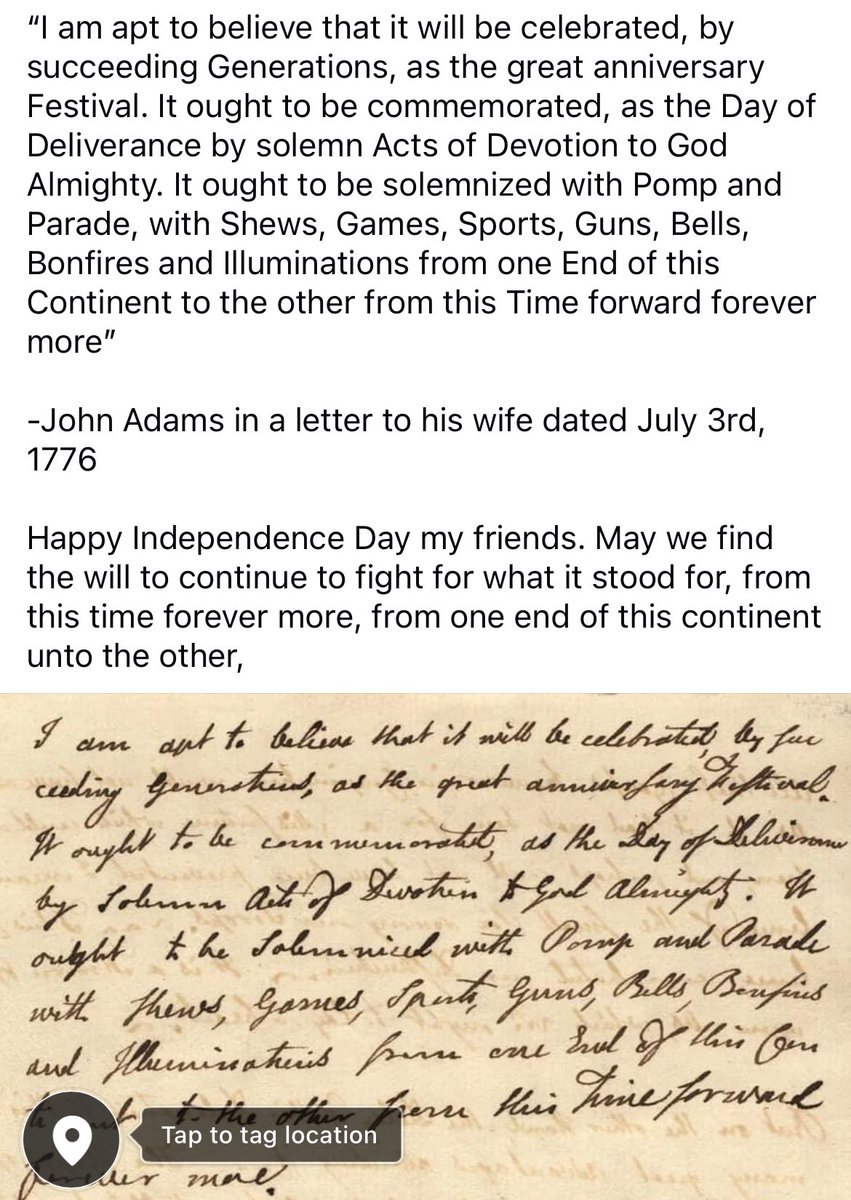 “I am apt to believe that it will be celebrated, by
succeeding Generations, as the great anniversary
Festival. It ought to be commemorated, as the Day of
Deliverance by solemn Acts of Devotion to God
Almighty. It ought to be solemnized with Pomp and
Parade, with Shews, Games, Sports, Guns, Bells,
Bonfires and Illuminations from one End of this
Continent to the other from this Time forward forever
more”
-John Adams in a letter to his wife dated July 3rd,
1776
Happy Independence Day my friends. May we find
the will to continue to fight for what it stood for, from
this time forever more, from one end of this continent
unto the other,
I am apt to believe that it will be celebrated, by suc
ceeding Generations, as the great anniversary Festival.
It ought to be commemorated, as the Day of Deliverance
by Solemn Acts of Devotion to God Almighty. It
ought to be Solemnized with Pomp and Parade
with Shews, Games, Sports, Guns, Bells, Bonfires
and Illuminations from one End of this Con
to the other from this Time forward
more.
Tap to tag location